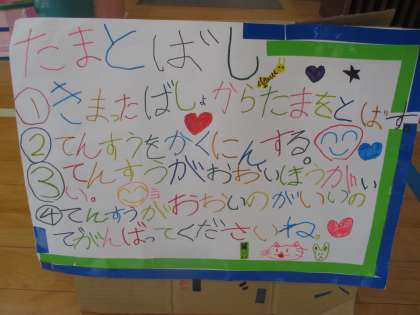 たまとばし
①きまったばしょからたまをとばす
②てんすうをかくにんする。
③てんすうがおおいほうがい
い。
④てんすうがおおいのがいいの
でがんばってくださいね。